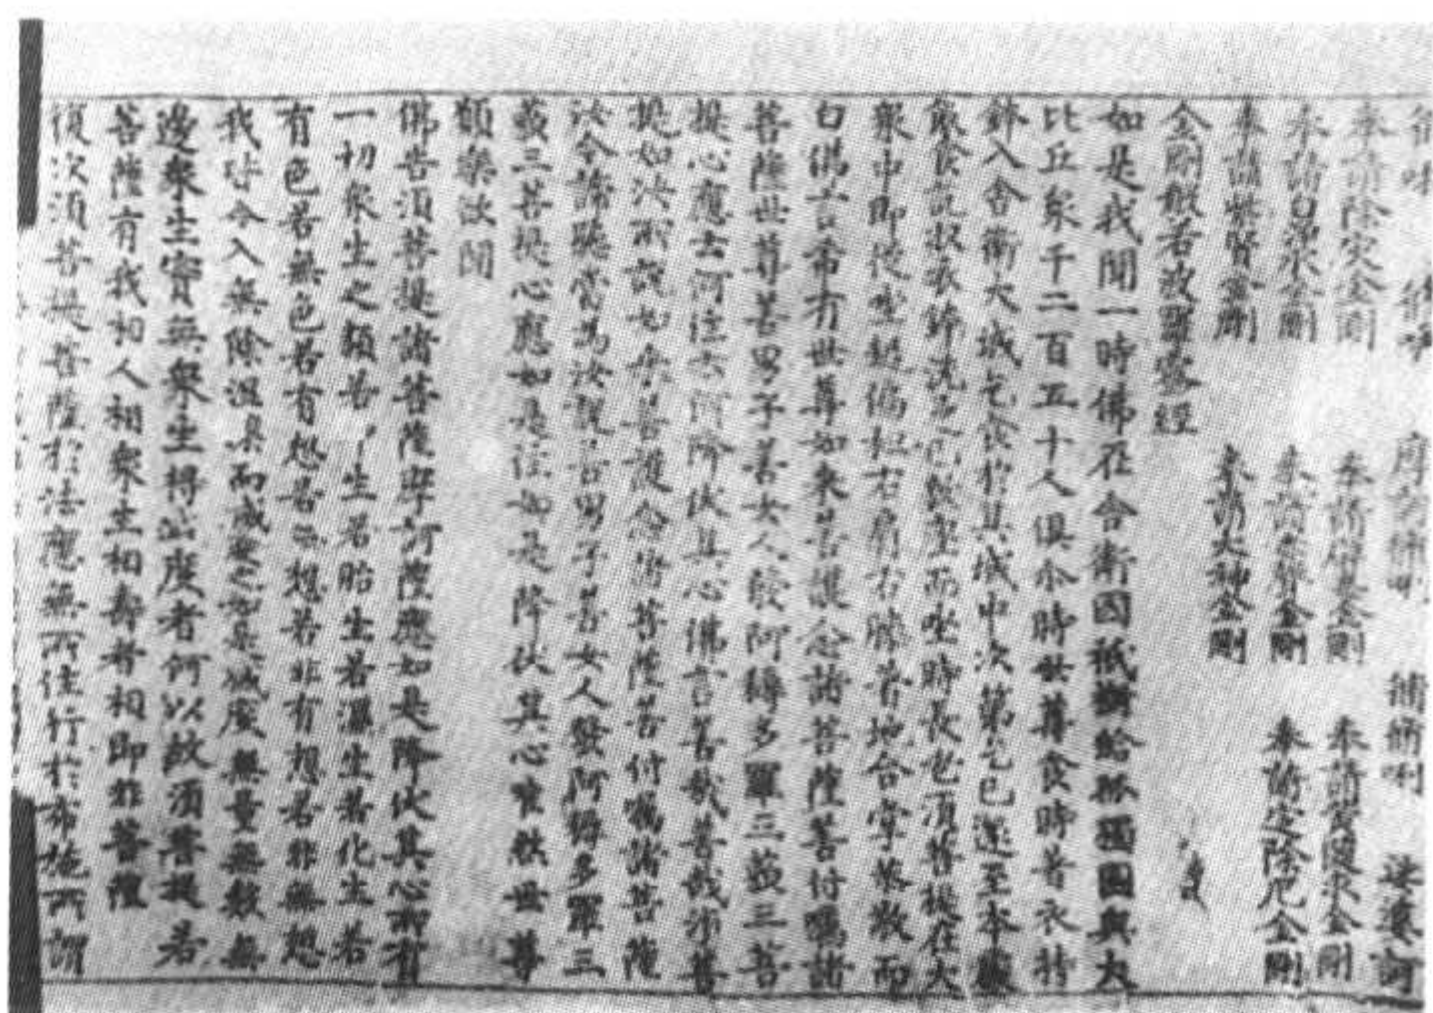 脩唎 脩唎 摩訶脩唎 脩脩唎 娑婆訶
奉請除灾金剛 奉請辟毒金剛 奉請黃隨求金剛
奉請白淨水金剛 奉請赤聲金剛 奉請定除厄金剛
奉請紫賢金剛 奉請大神金剛
金剛般若波羅蜜經
如是我聞一時佛在舍衛國祇樹給孤獨園與大
比丘眾千二百五十人俱尒時世尊食時著衣持
鉢入舍衛大城乞食於其城中次第乞已還至本處
飯食訖收衣鉢洗足已敷座而坐時長老須菩提在大
眾中即從坐起偏袒右肩右膝著地合掌恭敬而
白佛言希有世尊如來善護念諸菩薩善付囑諸
菩薩世尊善男子善女人發阿耨多羅三藐三菩
提心應云何住云何降伏其心佛言善哉善哉須菩
提如汝所說如來善護念諸菩薩善付囑諸菩薩
汝今諦聽當為汝說善男子善女人發阿耨多羅三
藐三菩提心應如是住如是降伏其心唯然世尊
願樂欲聞
佛告須菩提諸菩薩摩訶薩應如是降伏其心所有
一切眾生之類若 生若胎生若濕生若化生若
有色若無色若有想若无想若非有想若非無想
我皆令入無餘涅槃而滅度之如是滅度無量無數無
邊眾生實無眾生得滅度者何以故須菩提若
菩薩有我相人相眾生相壽者相即非菩薩
復次須菩提菩薩於法應無所住行於布施所謂